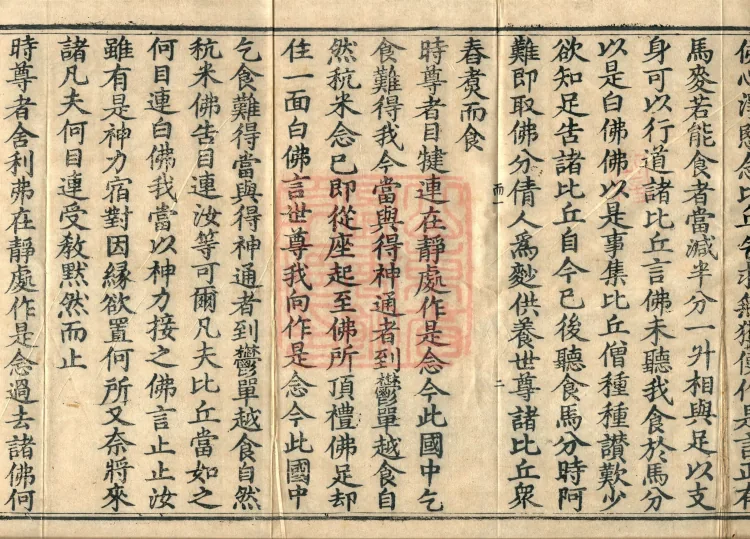 馬麥若能食者當減半分一升相與足以支
身可以行道諸比丘言佛未聽我食於馬分
以是白佛佛以是事集比丘僧種種讚歎少
欲知足告諸比丘自今已後聽食馬分時阿
難即取佛分倩人爲麨供養世尊諸比丘衆
二
舂煑而食
時尊者目犍連在靜處作是念今此國中乞
食難得我今當與得神通者到鬱單越食自
然秔米念已即從座起至佛所頂禮佛足却
住一面白佛言世尊我向作是念今此國中
乞食難得當與得神通者到鬱單越食自然
秔米佛告目連汝等可爾凡夫比丘當如之
何目連白佛我當以神力接之佛言止止汝
雖有是神力宿對因緣欲置何所又奈將來
諸凡夫何目連受教默然而止
時尊者舍利弗在靜處作是念過去諸佛何